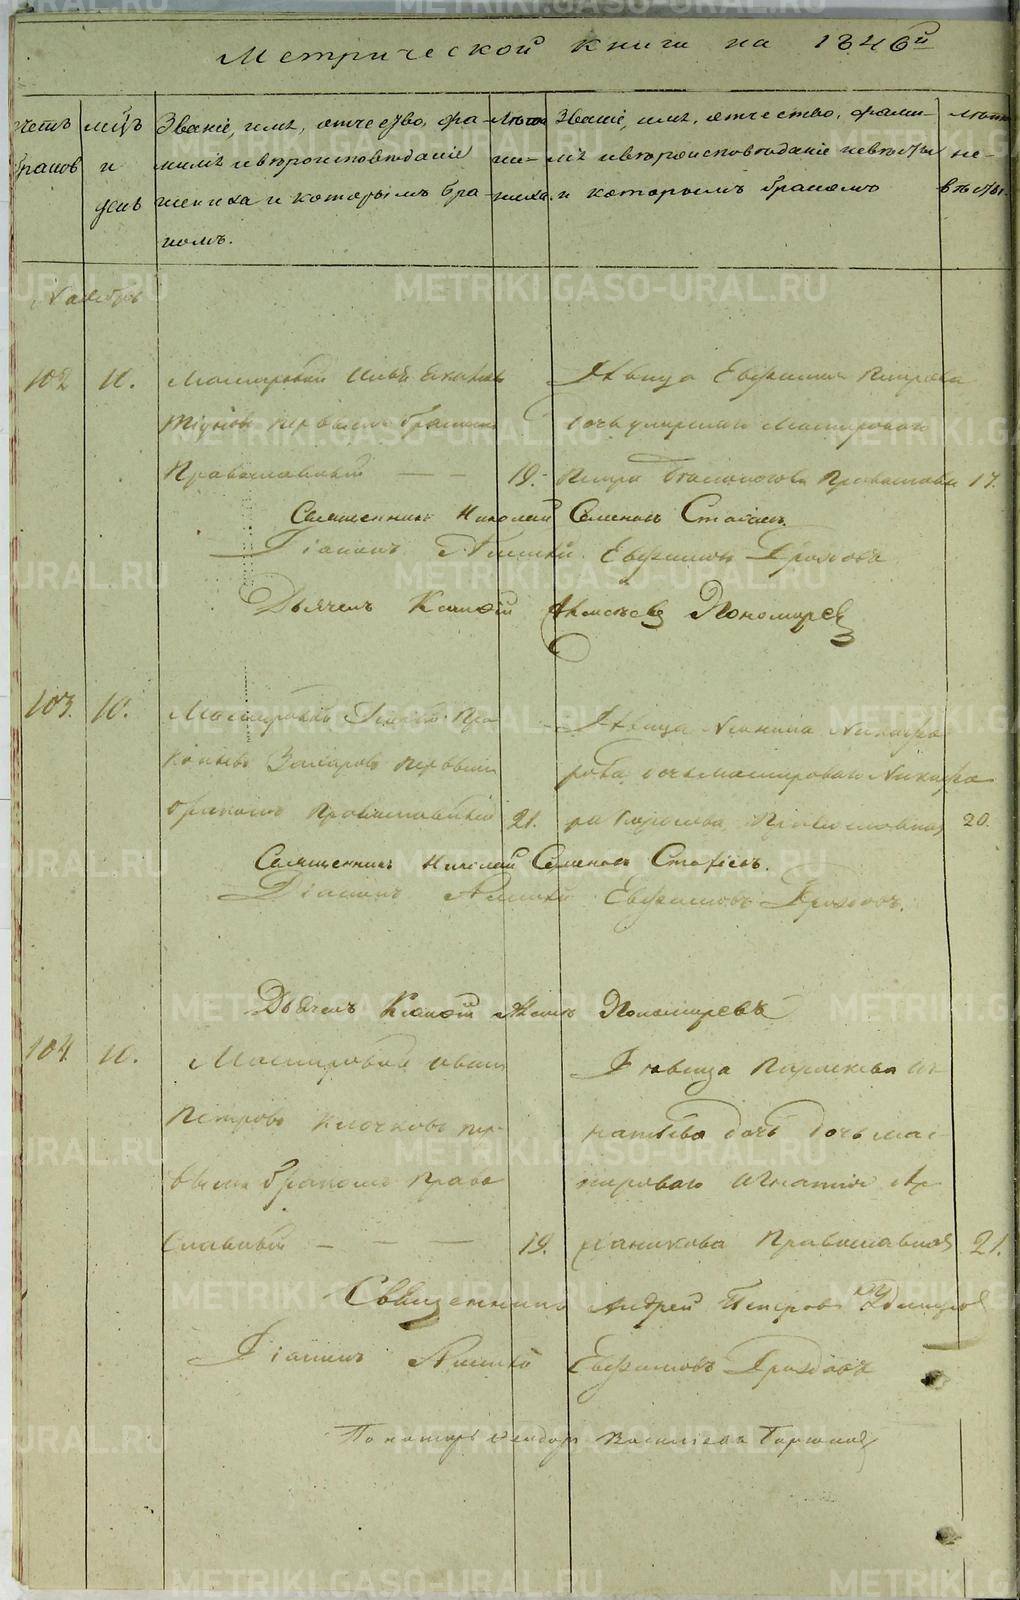 Метрической книги на 1846й
счетъ
браков
мцъ
и
день
Званіе, имя, отчество, фа-
милія и вѣроисповѣданіе
жениха и которымъ бра-
комъ.
Лѣта
же-
ниха.
Званіе, имя, отчество, фами-
лія и вѣроисповѣданіе невѣсты
и которымъ бракомъ
Лѣта
не-
вѣсты.
Ноябрь
102 10.
Мастеровой Илья
первымъ бракомъ
Православный — — 19.
Дѣвица Евфимія Петрова
дочь умершаго Мастероваго
Петра Православн 17.
Священникъ Николай Семеновъ
Діаконъ Алексѣй Евфимовъ Дроздовъ
Дьячекъ Климентій Алексѣевъ Пономаревъ
103. 10.
Мастеровой Георгій Про
копьевъ Захаровъ первымъ
бракомъ Православный 21.
Дѣвица Никифо
рова, дочь мастероваго Никифо
ра Православная 20.
Священникъ Николай Семеновъ
Діаконъ Алексѣй Евфимовъ Дроздовъ.
Дьячекъ Климентій Пономаревъ
104 10.
Мастеровой Иванъ
Петровъ Клочковъ пер-
вымъ бракомъ Право
славный — — — 19.
Дѣвица Параскева Иг
натьева дочь дочь мас-
тероваго Игнатія Ар
ханикова Православная 21.
Священникъ Андрей Петровъ Удинцовъ
Діаконъ Алексѣй Евфимовъ Дроздовъ
Пономарь Ѳеодоръ Василіевъ
METRIKI.GASO-URAL.RU